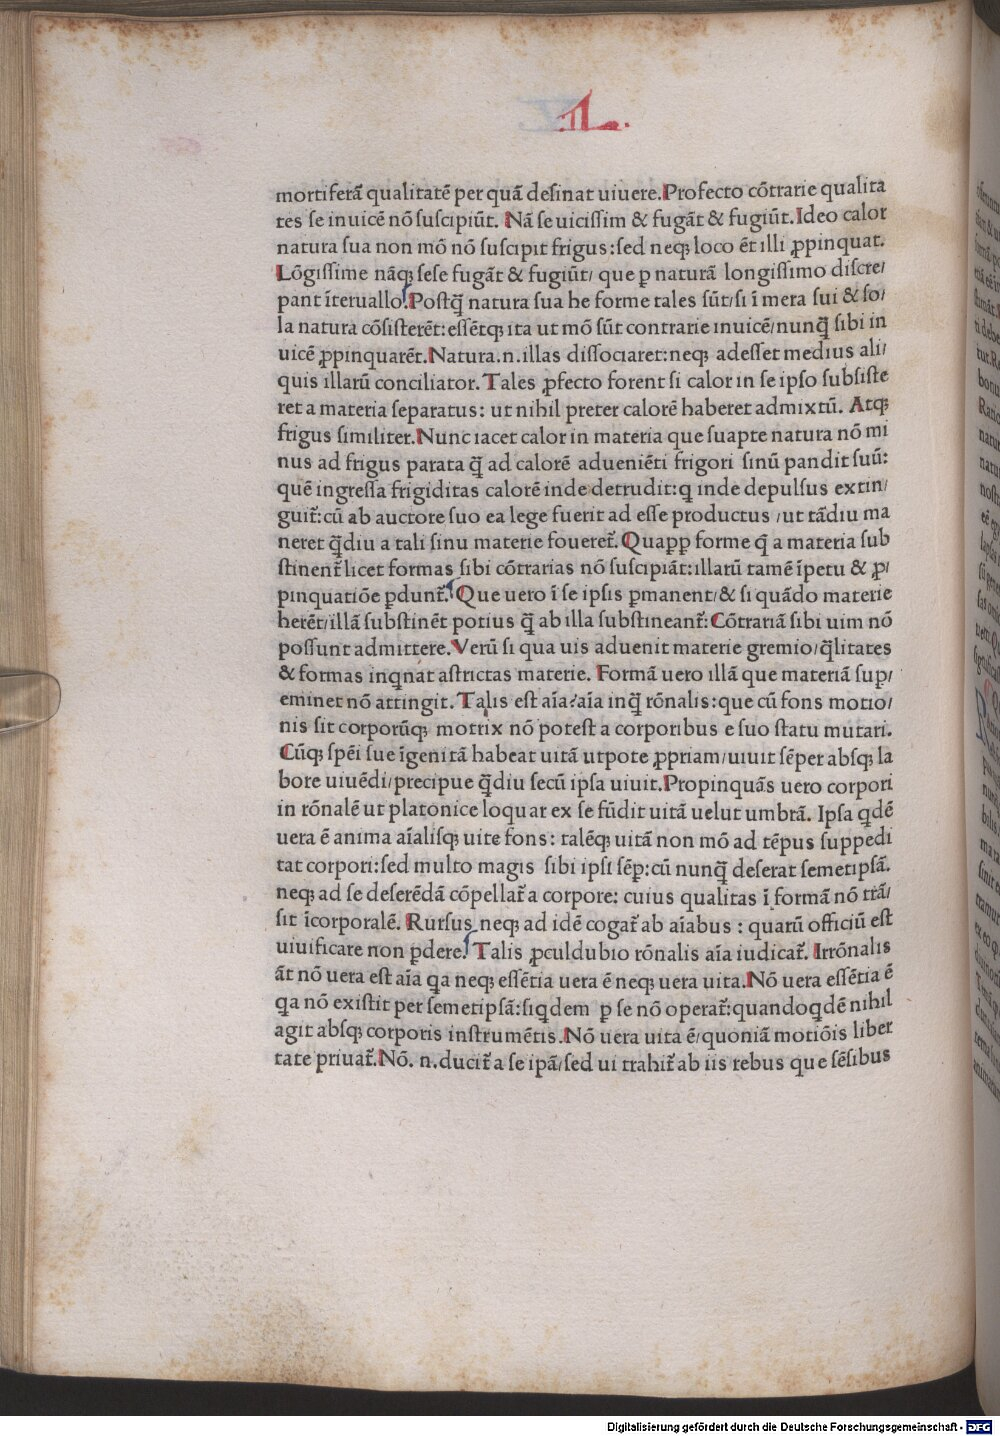 .L.
mortiferā qualitatē per quā desinat uiuere. Profecto cōtrarie qualita
tes se inuicē nō suscipiūt. Nā se uicissim & fugāt & fugiūt. Ideo calor
natura sua non mō nō suscipit frigus: sed neqꝫ loco ēt illi ꝓpinquat.
Lōgissime nāqꝫ sese fugāt & fugiūt/ que ꝑ naturā longissimo discre/
pant īteruallo. Postq̄ natura sua he forme tales sūt/ si ī mera sui & so/
la natura cōsisterēt: essētqꝫ ita ut mō sūt contrarie inuicē/ nunq̄ sibi in
uicē ꝓpinquarēt. Natura .n. illas dissociaret: neqꝫ adesset medius ali/
quis illarū conciliator. Tales ꝓfecto forent si calor in se ipso subsiste
ret a materia separatus: ut nihil preter calorē haberet admixtū. Atqꝫ
frigus similiter. Nunc iacet calor in materia que suapte natura nō mi
nus ad frigus parata q̄ ad calorē adueniēti frigori sinū pandit suū:
quē ingressa frigiditas calorē inde detrudit: q inde depulsus extin/
guit̄: cū ab auctore suo ea lege fuerit ad esse productus /ut tādiu ma
neret q̄diu a tali sinu materie foueret̄. Quapꝑ forme q̄ a materia sub
stinent̄ licet formas sibi cōtrarias nō suscipiāt: illarū tamē īpetu & ꝓ/
pinquatiōe ꝑdunt̄. Que uero ī se ipsis ꝑmanent/ & si quādo materie
herēt/ illā substinēt potius q̄ ab illa substineant̄: Cōtrariā sibi uim nō
possunt admittere. Verū si qua uis aduenit materie gremio/ q̄litates
& formas inqnat astrictas materie. Formā uero illā que materiā suꝑ/
eminet nō attingit. Talis est aīa? aīa inq̄ rōnalis: que cū fons motio/
nis sit corporūqꝫ motrix nō potest a corporibus e suo statu mutari.
Cūqꝫ spēi sue īgenitā habeat uitā utpote ꝓpriam/ uiuit sēper absqꝫ la
bore uiuēdi/ precipue q̄diu secū ipsa uiuit. Propinquās uero corpori
in rōnalē ut platonice loquar ex se fūdit uitā uelut umbrā. Ipsa qdē
uera ē anima aīalisqꝫ uite fons: talēqꝫ uitā non mō ad tēpus suppedi
tat corpori: sed multo magis sibi ipsi sēꝑ: cū nunq̄ deserat semetipsā.
neqꝫ ad se deserēdā cōpellat̄ a corpore: cuius qualitas ī formā nō trā/
sit īcorporalē. Rursus neqꝫ ad idē cogat̄ ab aīabus : quarū officiū est
uiuificare non ꝑdere. Talis ꝓculdubio rōnalis aīa iudicat̄. Irrōnalis
āt nō uera est aīa qa neqꝫ essētia uera ē neqꝫ uera uita. Nō uera essētia ē
qa nō existit per semetipsā: siqdem ꝑ se nō operat̄: quandoqdē nihil
agit absqꝫ corporis instrumētis. Nō uera uita ē/ quoniā motiōis liber
tate priuat̄. Nō .n. ducit̄ a se ipā/ sed ui trahit̄ ab iis rebus que sēsibus
Digitalisierung gefördert durch die Deutsche Forschungsgemeinschaft - DFG